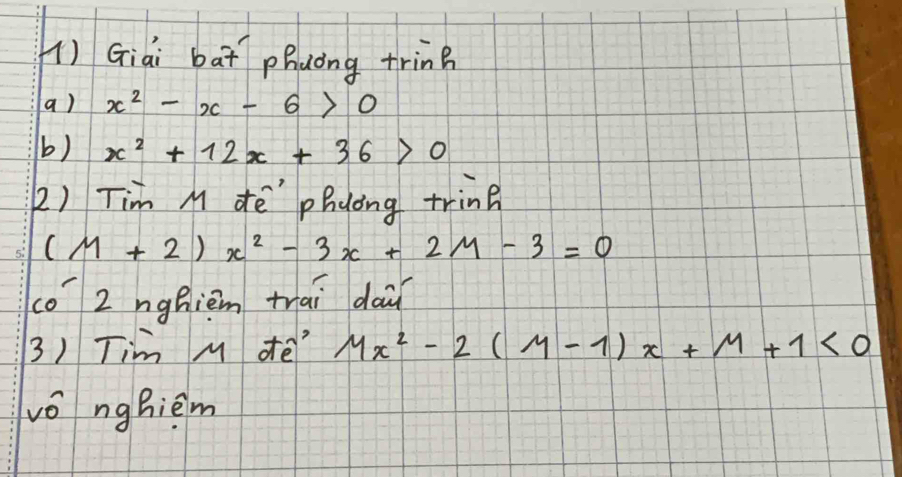 1) Giải bất phương trình
a) x² - x - 6 > 0
b) x² + 12x + 36 > 0
2) Tìm M để phương trình
(M + 2) x² - 3x + 2M - 3 = 0
có 2 nghiệm trái dấu
3) Tìm M để Mx² - 2 (M - 1) x + M + 1 < 0
vô nghiệm